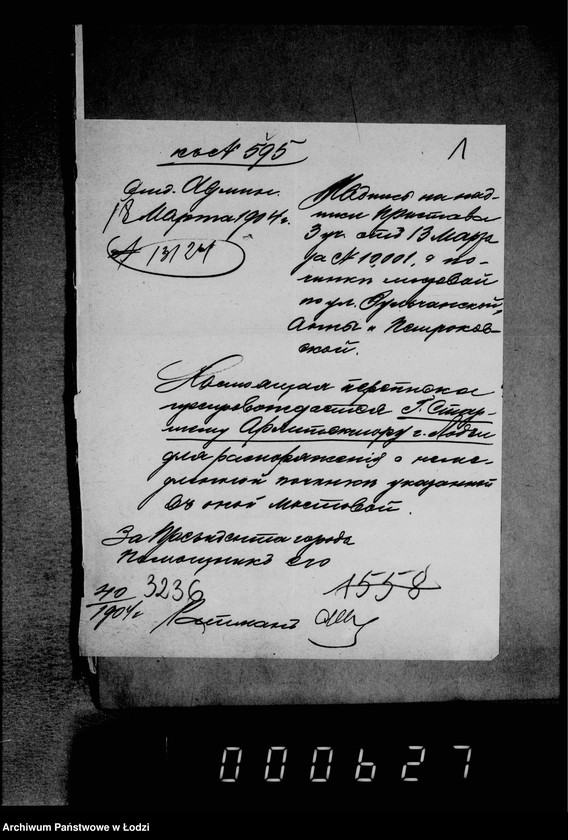 къ № 595
1
Отд. Админ.
18 Марта 1904 г.
№ 13124
Надпись на над-
писи Пристава
3 уч. отъ 13 Марта
за № 10,001, о по-
чинкѣ мостовой
по ул.
Анны и Петроков-
ской.
Настоящая переписка
препровождается Г. Стар-
шему Архитектору г. Лодзи
для распоряженія о неме-
дленной починкѣ указанной
въ оной мостовой.
За Президента города
Помощникъ его
40/1904 г. 3236
1558
000627
Archiwum Państwowe w Łodzi